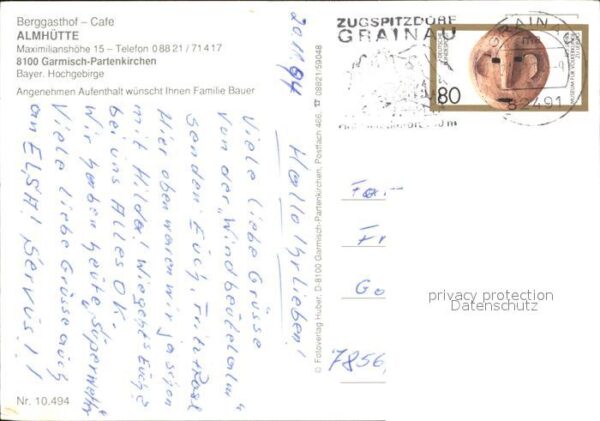 Berggasthof - Cafe
ALMHÜTTE
Maximilianshöhe 15 - Telefon 0 88 21 / 71 4 17
8100 Garmisch-Partenkirchen
Bayer. Hochgebirge
Angenehmen Aufenthalt wünscht Ihnen Familie Bauer
Hallo Ihr Lieben!
Viele liebe Grüsse
von der „Windbeutelalm"
senden Euch, Fritz + Rosl
Hier oben waren wir ja schon
mit Hilde! Wie geht's Euch?
bei uns Alles OK.
Wir haben heute, Superwetter
Viele liebe Grüsse auch
an ELSA! Servus!!
Nr. 10.494
© Fotoverlag Huber, D-8100 Garmisch-Partenkirchen, Postfach 466, ☎ 08821/59048
ZUGSPITZDORF
GRAINAU
GRAINAU
82491
80
DEUTSCHE BUNDESPOST
MUSEUM FÜR VÖLKERKUNDE
Fam.
Fr
Ge
7856,
privacy protection
Datenschutz